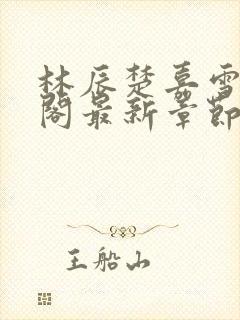 林辰楚嘉雪
阁最新章节
王船山